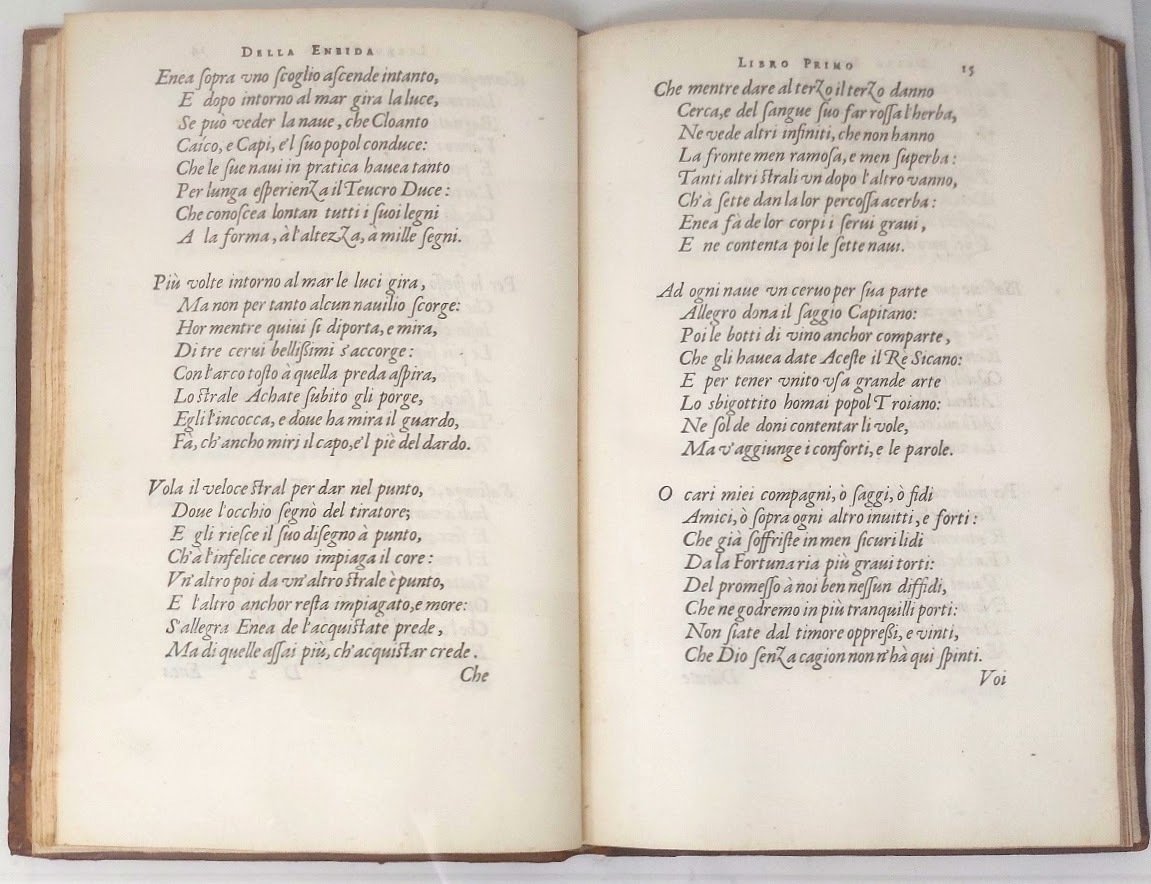 DELLA ENEIDA
Enea ſopra vno ſcoglio aſcende intanto,
E dopo intorno al mar gira la luce,
Se può veder la naue, che Cloanto
Caíco, e Capi, e'l ſuo popol conduce:
Che le ſue naui in pratica hauea tanto
Per lunga eſperienza il Teucro Duce:
Che conoſcea lontan tutti i ſuoi legni
A la forma, à l'altezza, à mille ſegni.
Più volte intorno al mar le luci gira,
Ma non per tanto alcun nauilio ſcorge:
Hor mentre quiui ſi diporta, e mira,
Di tre cerui belliſsimi s'accorge:
Con l'arco toſto à quella preda aſpira,
Lo ſtrale Achate ſubito gli porge,
Egli l'incocca, e doue ha mira il guardo,
Fà, ch'ancho miri il capo, e'l piè del dardo.
Vola il veloce ſtral per dar nel punto,
Doue l'occhio ſegnò del tiratore;
E gli rieſce il ſuo diſegno à punto,
Ch'à l'infelice ceruo impiaga il core:
Vn'altro poi da vn'altro ſtrale è punto,
E l'altro anchor reſta impiagato, e more:
S'allegra Enea de l'acquiſtate prede,
Ma di quelle aſſai più, ch'acquiſtar crede.
Che
LIBRO PRIMO 15
Che mentre dare al terzo il terzo danno
Cerca, e del ſangue ſuo far roſſa l'herba,
Ne vede altri infiniti, che non hanno
La fronte men ramoſa, e men ſuperba:
Tanti altri ſtrali vn dopo l'altro vanno,
Ch'à ſette dan la lor percoſſa acerba:
Enea fà de lor corpi i ſerui graui,
E ne contenta poi le ſette naui.
Ad ogni naue vn ceruo per ſua parte
Allegro dona il ſaggio Capitano:
Poi le botti di vino anchor comparte,
Che gli hauea date Aceſte il Rè Sicano:
E per tener vnito vſa grande arte
Lo sbigottito homai popol Troiano:
Ne ſol de doni contentar li vole,
Ma v'aggiunge i conforti, e le parole.
O cari miei compagni, ò ſaggi, ò fidi
Amici, ò ſopra ogni altro inuitti, e forti:
Che già ſoffriſte in men ſicuri lidi
Da la Fortuna ria più graui torti:
Del promeſſo à noi ben neſſun diffidi,
Che ne godremo in più tranquilli porti:
Non ſiate dal timore oppreſsi, e vinti,
Che Dio ſenza cagion non n'hà qui ſpinti.
Voi